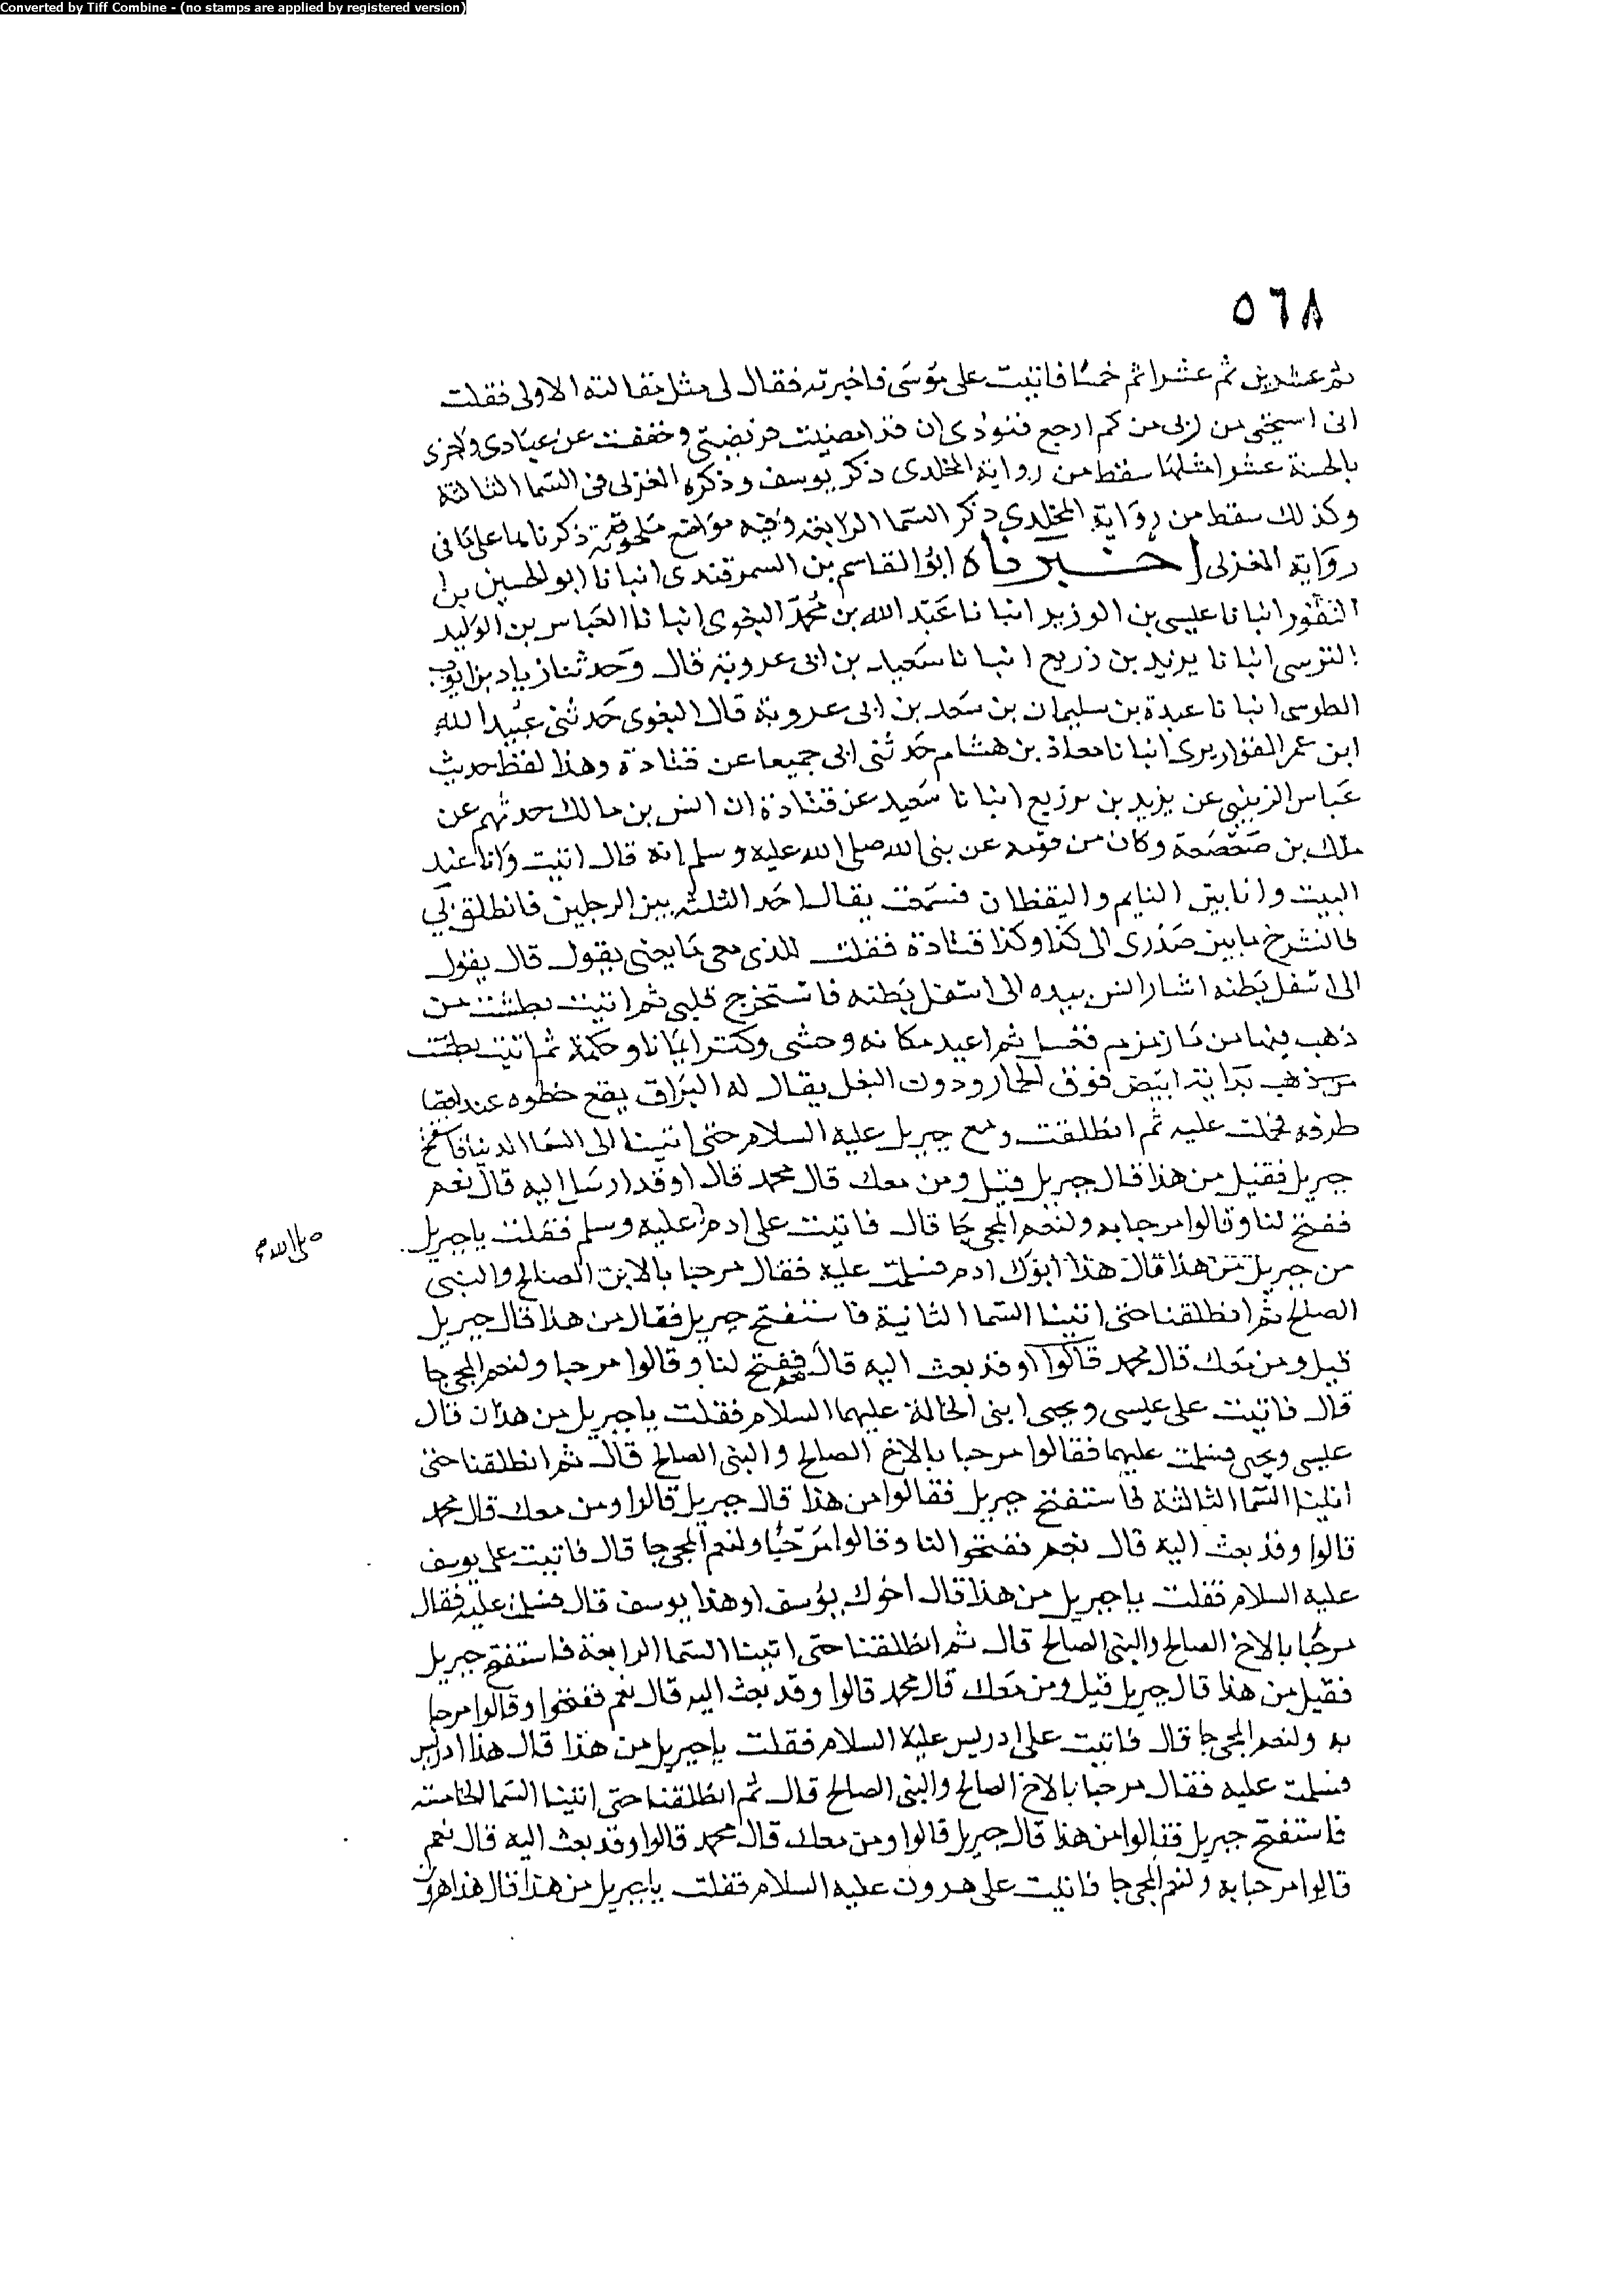 Converted by Tiff Combine - (no stamps are applied by registered version)
٥٦٨
ثم عشرين ثم عشرا ثم خمسا فاتيت على موسى فاخبرته فقال لى مثل مقالته الاولى فقلت
انى استحيى من ربى من كم ارجع فنودى ان قد امضيت فريضتى وخففت عن عبادى واجزى
بالحسنة عشر امثلها سقط من رواية المخلدى ذكر يوسف وذكره المغزلى فى السما الثالثة
وكذلك سقط من رواية المخلدى ذكر السما الرابعة وفيه مواضع ذكرناها على ما فى
رواية المغزلى اخبرناه ابو القاسم بن السمرقندى انبانا ابو الحسين بن
النقور انبانا عيسى بن الوزير انبانا عبد الله بن محمد البغوى انبانا العباس بن الوليد
النرسى انبانا يزيد بن زريع انبانا سعيد بن ابى عروبة قال وحدثنا زياد بن ايوب
الطوسى انبانا عبدة بن سليمان بن سعد بن ابى عروبة قال البغوى حدثنى عبيد الله
ابن عمر القواريرى انبانا معاذ بن هشام حدثنى ابى جميعا عن قتادة وهذا لفظ حديث
عباس الزينبى عن يزيد بن زريع انبانا سعيد عن قتادة ان انس بن مالك حدثهم عن
ملك بن صعصعة وكان من قومه عن نبى الله صلى الله عليه وسلم انه قال اتيت وانا عند
البيت وانا بين النايم واليقظان فسمعت يقال احد الثلثة بين الرجلين فانطلق بى
فانشرح ما بين صدرى الى كذا وكذا قتادة فقلت للذى معى ما يعنى بقول قال يقول
الى اسفل بطنه اشار انس بيده الى اسفل بطنه فاستخرج قلبى ثم اتيت بطشت من
ذهب فيها من ما زمزم فغسل ثم اعيد مكانه وحشى وكنز ايمانا وحكمة ثم اتيت بطشت
من ذهب بدابة ابيض فوق الحمار ودون البغل يقال له البراق يقع خطوه عند اقصا
طرفه فحملت عليه ثم انطلقت ومع جبريل عليه السلام حتى اتينا الى السما الدنيا فاستفتح
جبريل فقيل من هذا قال جبريل قيل ومن معك قال محمد قال اوقد ارسل اليه قال نعم
ففتح لنا وقالوا مرحبا به ولنعم المجى جا قال فاتيت على ادم عليه وسلم فقلت يا جبريل
صلى الله
من جبريل من هذا قال هذا ابوك ادم فسلمت عليه فقال مرحبا بالابن الصالح والنبى
الصالح ثم انطلقنا حتى اتينا السما الثانية فاستفتح جبريل فقال من هذا قال جبريل
قيل ومن معك قال محمد قالوا اوقد بعث اليه قال نعم ففتح لنا وقالوا مرحبا ولنعم المجى جا
قال فاتيت على عيسى ويحيى ابنى الخالة عليهما السلام فقلت يا جبريل من هذان قال
عيسى ويحيى فسلمت عليهما فقالوا مرحبا بالاخ الصالح والنبى الصالح قال ثم انطلقنا حتى
اتينا السما الثالثة فاستفتح جبريل فقالوا من هذا قال جبريل قالوا ومن معك قال محمد
قالوا وقد بعث اليه قال نعم ففتحوا لنا وقالوا مرحبا ولنعم المجى جا قال فاتيت على يوسف
عليه السلام فقلت يا جبريل من هذا قال اخوك يوسف اوهذا يوسف قال فسلمت عليه فقال
مرحبا بالاخ الصالح والنبى الصالح قال ثم انطلقنا حتى اتينا السما الرابعة فاستفتح جبريل
فقيل من هذا قال جبريل قيل ومن معك قال محمد قالوا وقد بعث اليه قال نعم ففتحوا وقالوا مرحبا
به ولنعم المجى جا قال فاتيت على ادريس عليه السلام فقلت يا جبريل من هذا قال هذا ادريس
فسلمت عليه فقال مرحبا بالاخ الصالح والنبى الصالح قال ثم انطلقنا حتى اتينا السما الخامسة
فاستفتح جبريل فقالوا من هذا قال جبريل قالوا ومن معك قال محمد قالوا وقد بعث اليه قال نعم
قالوا مرحبا به ولنعم المجى جا فاتيت على هرون عليه السلام فقلت يا جبريل من هذا قال هذا هرون